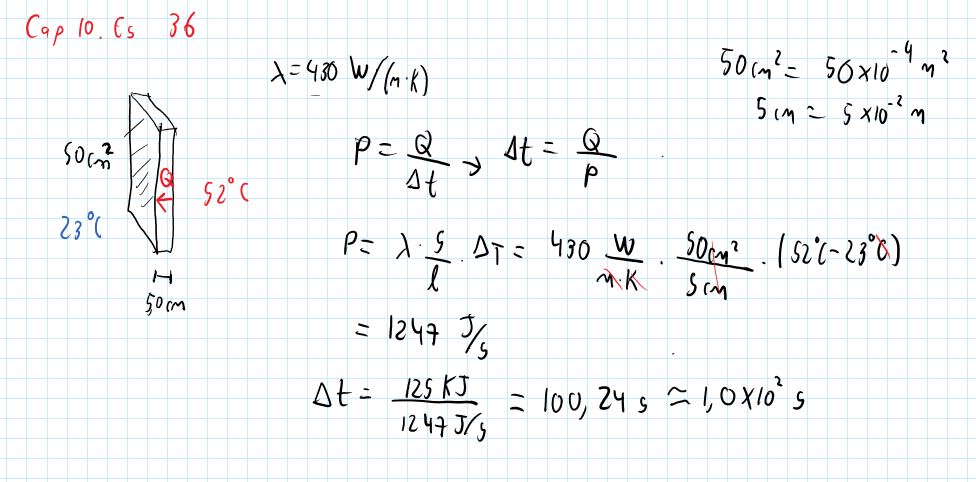 Cap 10. Es 36
λ=430 W/(m·K)
50cm² = 50×10⁻⁴ m²
5cm = 5×10⁻² m
50cm²
Q
52°C
23°C
5,0cm
P = Q/Δt → Δt = Q/P
P = λ · S/l · ΔT = 430 W/m·K · 50cm²/5cm · (52°C-23°C)
= 1247 J/s
Δt = 125 KJ/1247 J/s = 100,24 s ≈ 1,0×10² s